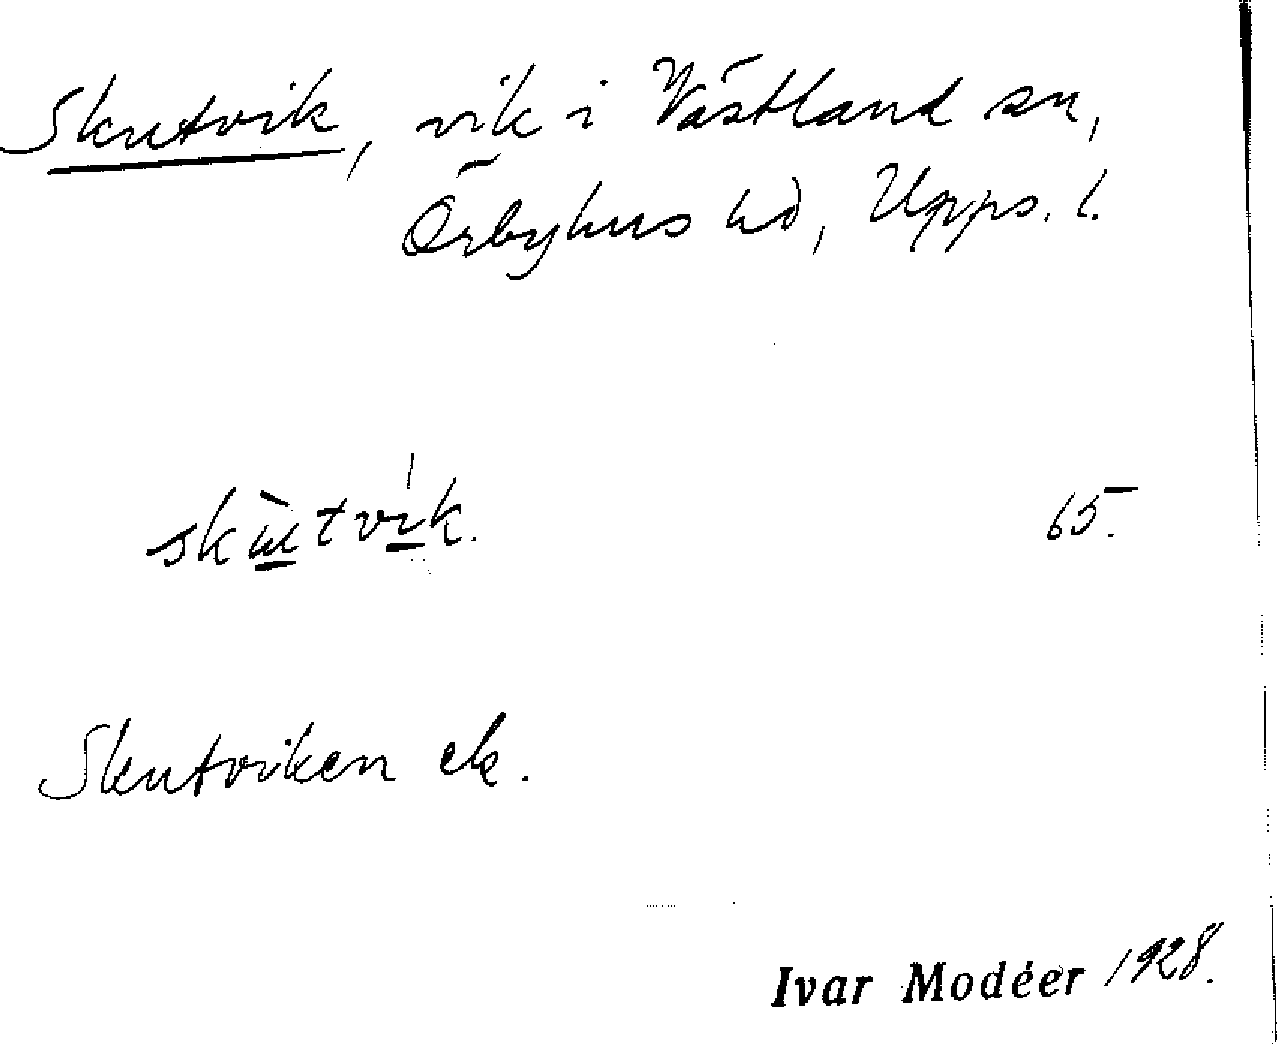 Skutvik, vik i Västland sn,
Örbyhus hd, Upps. l.
skùtvik. 65.
Skutviken ek.
Ivar Modéer 1928.